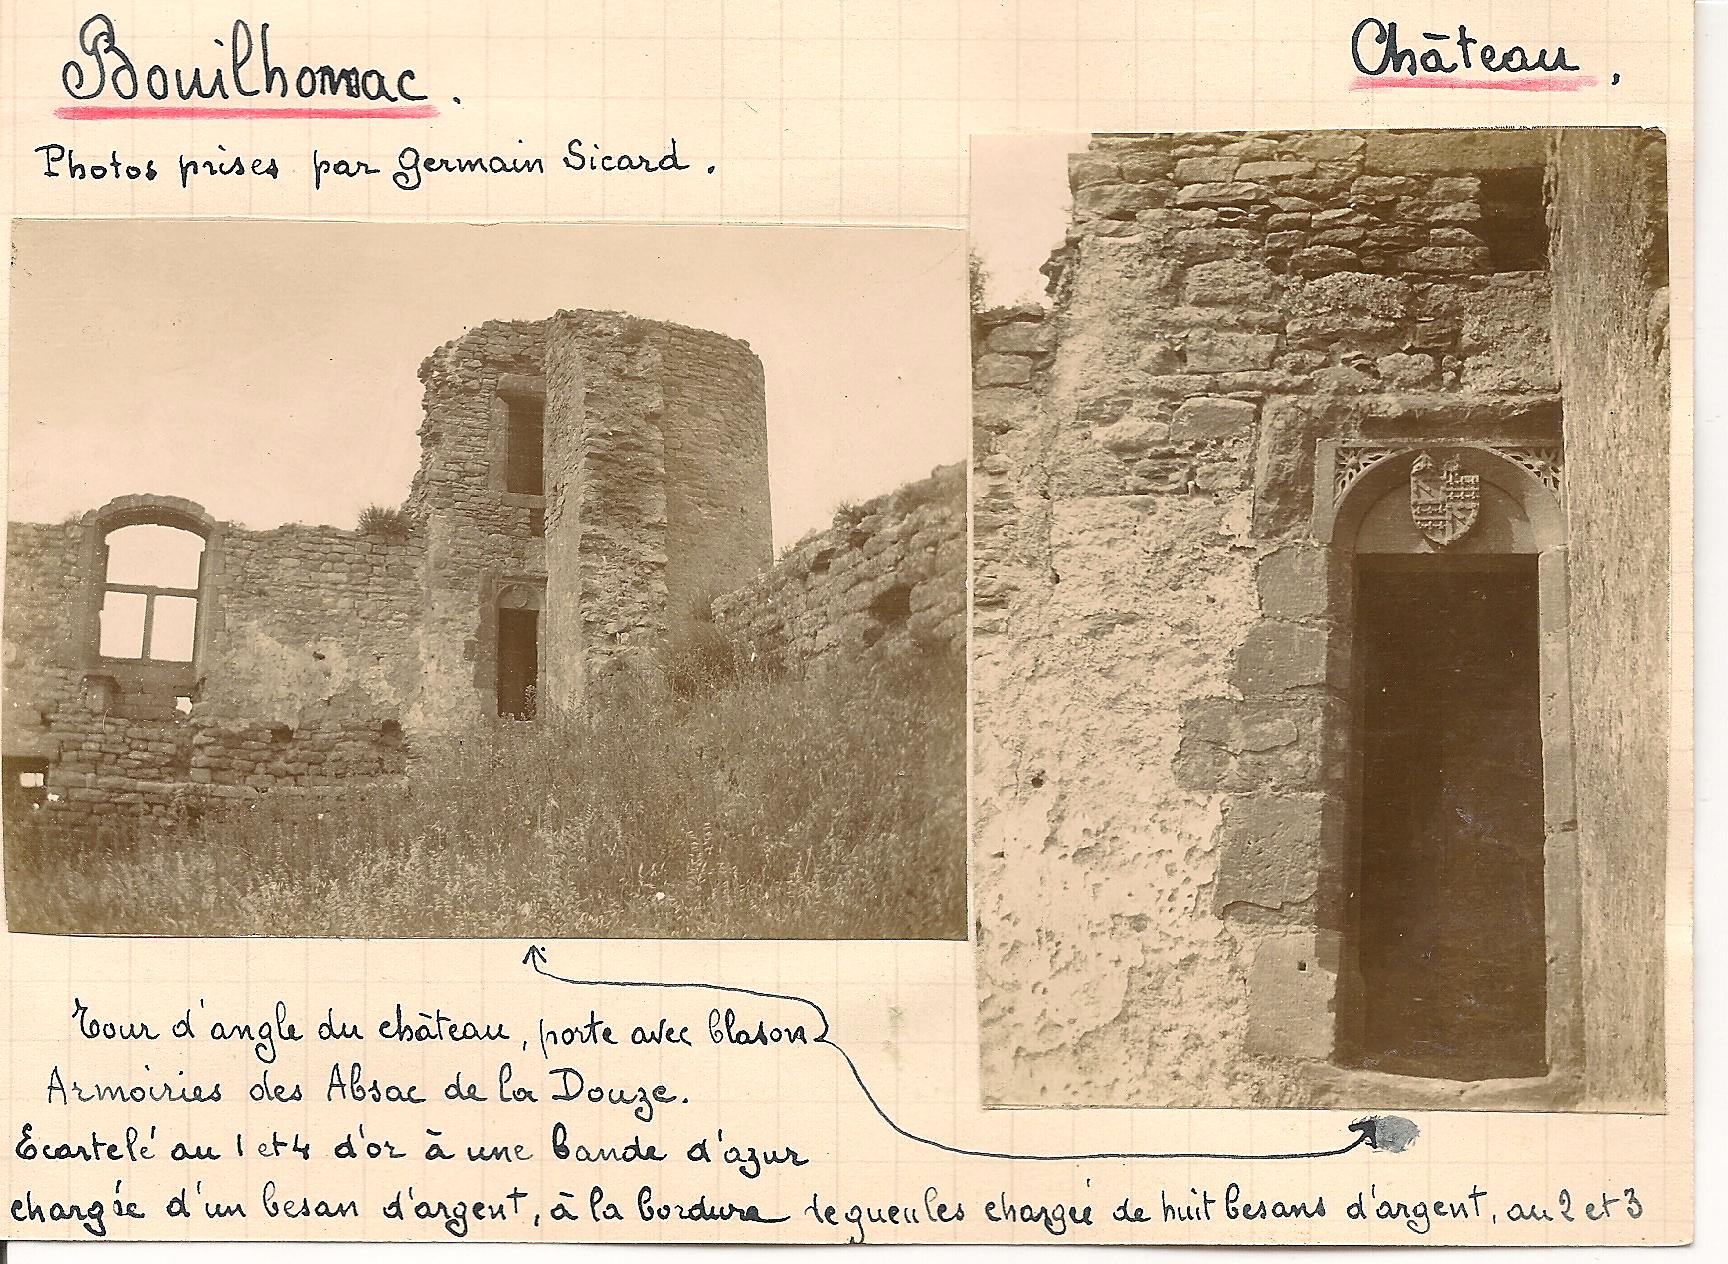 Bouilhonnac.
Château.
Photos prises par Germain Sicard.
Tour d'angle du château, porte avec blason
Armoiries des Absac de la Douze.
Ecartelé au 1 et 4 d'or à une bande d'azur
chargée d'un besan d'argent, à la bordure de gueules chargée de huit besans d'argent, au 2 et 3